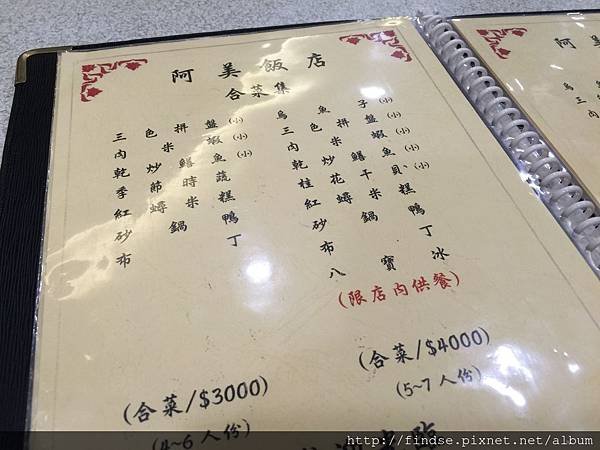 阿美飯店
合菜集
三色拼盤(小)
肉米蝦(小)
乾炒鱔魚(小)
季節時蔬(小)
紅蟳米糕
砂鍋鴨
布丁
(合菜/$3000)
(4~6人份)
烏魚子(小)
三色拼盤(小)
肉米蝦(小)
乾炒鱔魚(小)
桂花干貝(小)
紅蟳米糕
砂鍋鴨
布丁
八寶冰
(限店內供餐)
(合菜/$4000)
(5~7人份)
阿美
http://findse.pixnet.net/album